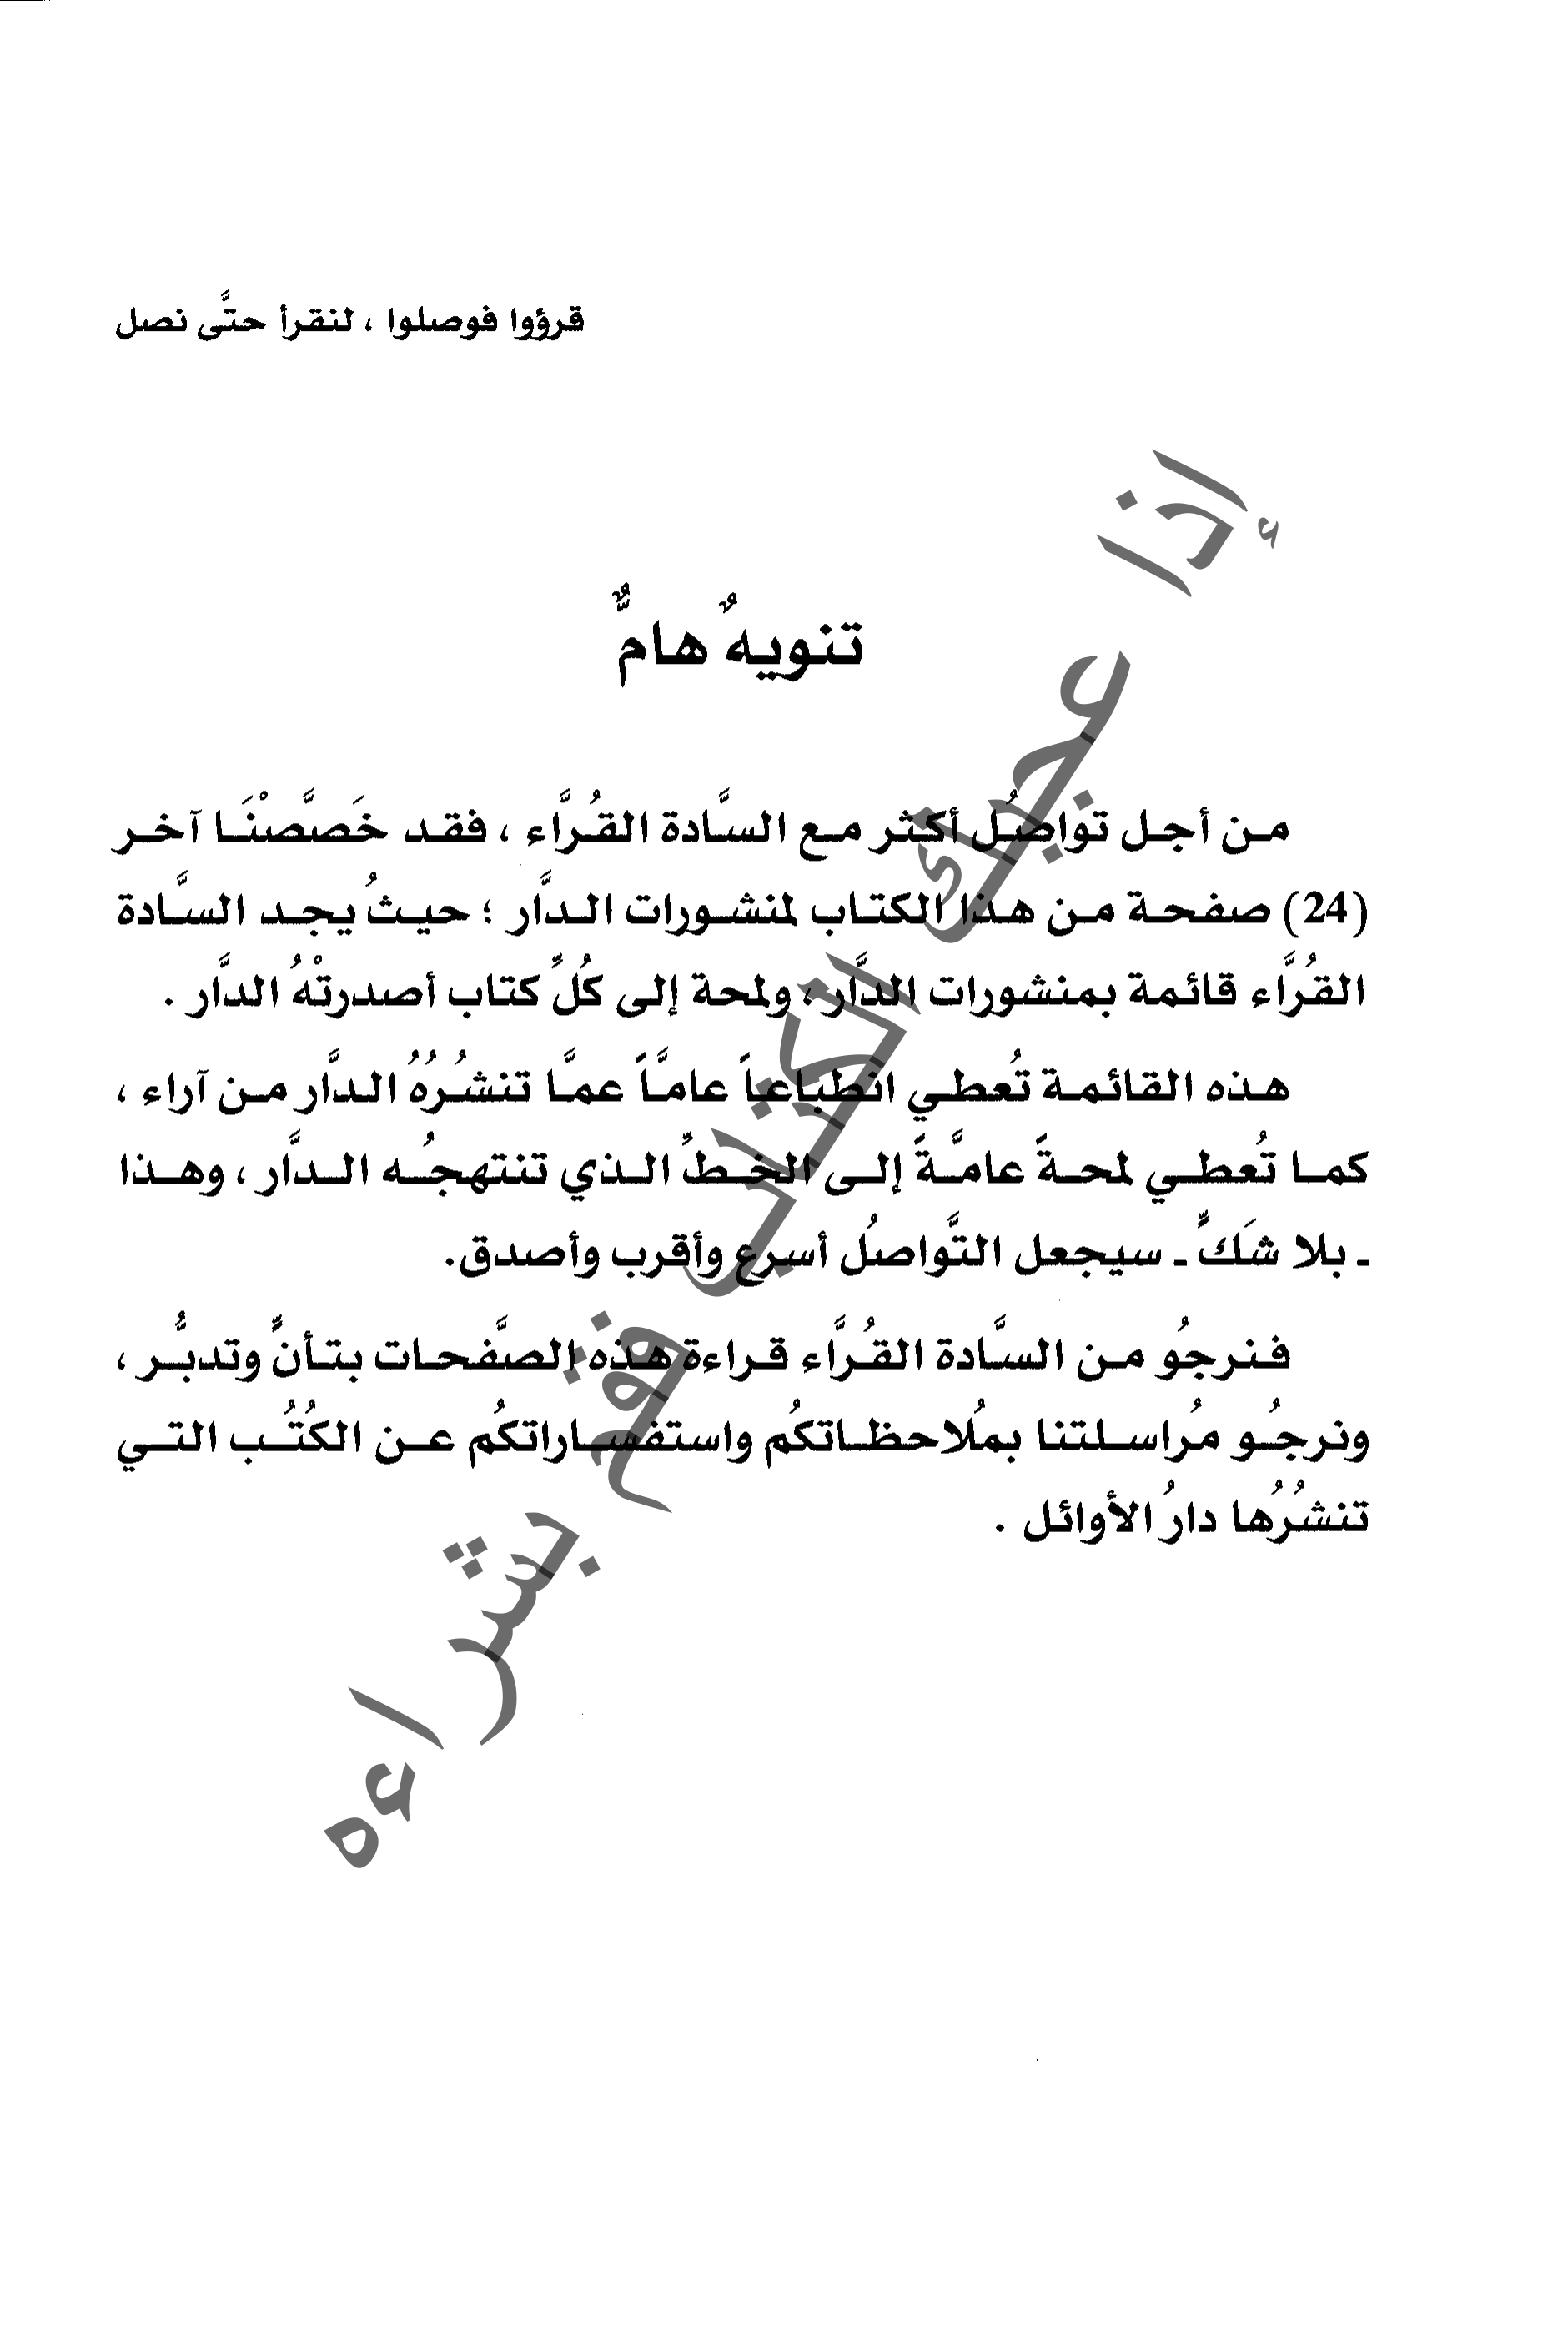 قرؤوا فوصلوا ، لنقرأ حتَّى نصل
تنويهٌ هامٌّ
من أجل تواصُل أكثر مع السَّادة القُرَّاء ، فقد خَصَّصْنَا آخر
(24) صفحة من هذا الكتاب لمنشورات الدَّار ؛ حيثُ يجد السَّادة
القُرَّاء قائمة بمنشورات الدَّار ، ولمحة إلى كُلِّ كتاب أصدرتْهُ الدَّار .
هذه القائمة تُعطي انطباعاً عامَّاً عمَّا تنشُرُهُ الدَّار من آراء ،
كما تُعطي لمحةً عامَّةً إلى الخطِّ الذي تنتهجُه الدَّار ، وهذا
ـ بلا شَكٍّ ـ سيجعل التَّواصُل أسرع وأقرب وأصدق.
فنرجُو من السَّادة القُرَّاء قراءة هذه الصَّفحات بتأنٍّ وتدبُّر ،
ونرجُو مُراسلتنا بمُلاحظاتكُم واستفساراتكُم عن الكُتُب التي
تنشُرُها دارُ الأوائل .
إذا عجبك الكتاب فقم بشراءه